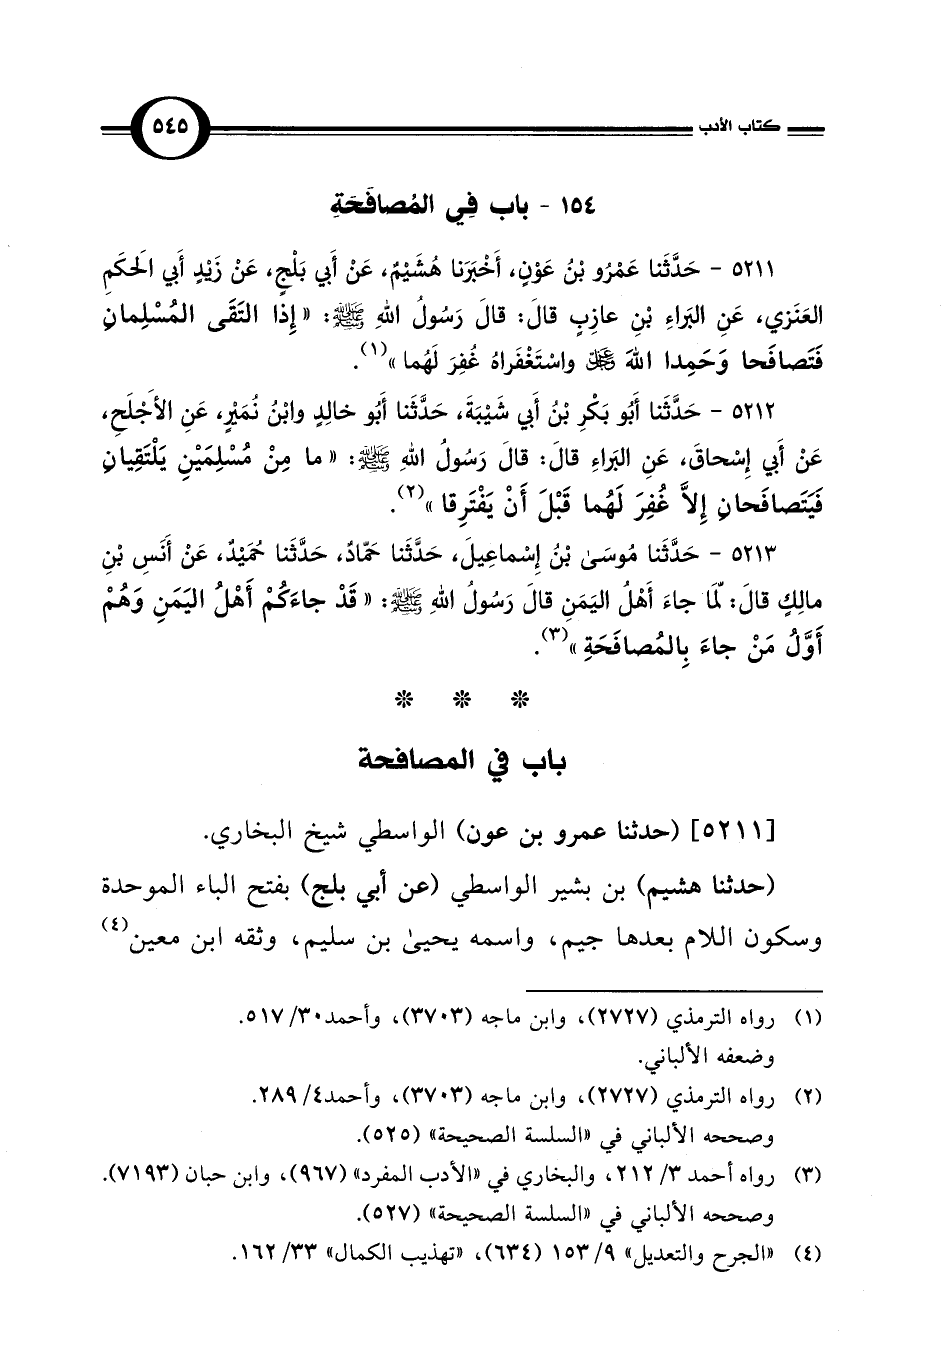 كتاب الأدب ٥٤٥
١٥٤ - باب فِي المُصافَحَةِ
٥٢١١ - حَدَّثَنا عَمْرُو بْنُ عَوْنٍ، أَخْبَرَنا هُشَيْمٌ، عَنْ أَبي بَلْجٍ، عَنْ زَيْدٍ أَبي الَحكَمِ
العَنَزي، عَنِ البَراءِ بْنِ عازِبٍ قالَ: قالَ رَسُولُ اللهِ ﷺ: « إِذا التَقَى المُسْلِمانِ
فَتَصافَحا وَحَمِدا اللهَ ﷻ واسْتَغْفَراهُ غُفِرَ لَهُما »(١).
٥٢١٢ - حَدَّثَنا أَبُو بَكْرِ بْنُ أَبي شَيْبَةَ، حَدَّثَنا أَبُو خالِدٍ وابْنُ نُمَيْرٍ، عَنِ الأَجْلَحِ،
عَنْ أَبي إِسْحاقَ، عَنِ البَراءِ قالَ: قالَ رَسُولُ اللهِ ﷺ: « ما مِنْ مُسْلِمَيْنِ يَلْتَقِيانِ
فَيَتَصافَحانِ إِلاَّ غُفِرَ لَهُما قَبْلَ أَنْ يَفْتَرِقا »(٢).
٥٢١٣ - حَدَّثَنا مُوسَىٰ بْنُ إِسْماعِيلَ، حَدَّثَنا حَمّادٌ، حَدَّثَنا حُمَيْدٌ، عَنْ أَنَسِ بْنِ
مالِكٍ قالَ: لَمّا جاءَ أَهْلُ اليَمَنِ قالَ رَسُولُ اللهِ ﷺ: « قَدْ جاءَكُمْ أَهْلُ اليَمَنِ وَهُمْ
أَوَّلُ مَنْ جاءَ بِالمُصافَحَةِ »(٣).
* * *
باب في المصافحة
[٥٢١١] (حدثنا عمرو بن عون) الواسطي شيخ البخاري.
(حدثنا هشيم) بن بشير الواسطي (عن أبي بلج) بفتح الباء الموحدة
وسكون اللام بعدها جيم، واسمه يحيىٰ بن سليم، وثقه ابن معين(٤)
(١) رواه الترمذي (٢٧٢٧)، وابن ماجه (٣٧٠٣)، وأحمد٣٠/ ٥١٧.
وضعفه الألباني.
(٢) رواه الترمذي (٢٧٢٧)، وابن ماجه (٣٧٠٣)، وأحمد٤/ ٢٨٩.
وصححه الألباني في «السلسة الصحيحة» (٥٢٥).
(٣) رواه أحمد ٣/ ٢١٢، والبخاري في «الأدب المفرد» (٩٦٧)، وابن حبان (٧١٩٣).
وصححه الألباني في «السلسة الصحيحة» (٥٢٧).
(٤) «الجرح والتعديل» ٩/ ١٥٣ (٦٣٤)، «تهذيب الكمال» ٣٣/ ١٦٢.